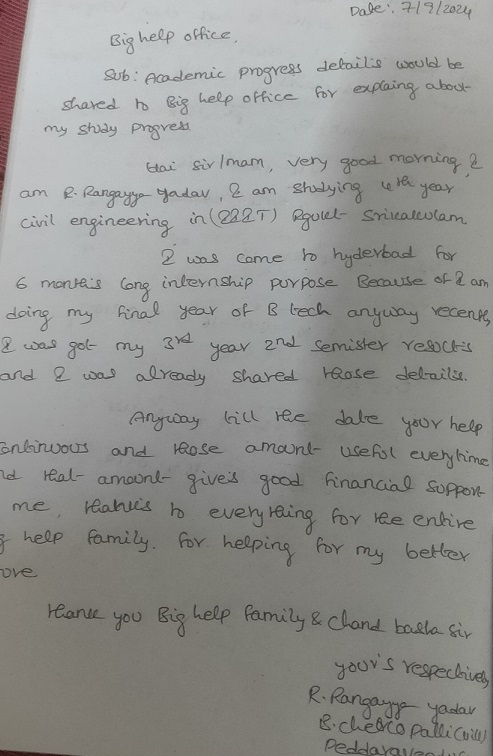 Date: 7/9/2024
Big help office,
Sub: Academic progress detailis would be
shared to Big help office for explaing about
my study progress
Hai sir/mam, very good morning, I
am R. Rangayya yadav, I am studying 4th year
civil engineering in (IIIT) Rgukt Srikakulam
I was came to hyderbad for
6 months long internship purpose Because of I am
doing my final year of B tech anyway recently
I was got my 3rd year 2nd semister results
and I was already shared those detailis.
Anyway till the date your help
continuous and those amount useful everytime
nd that amount gives good financial support
me, thanks to everything for the entire
g help family. for helping for my better
ore
thank you Big help family & Chand basha sir
your's respectively
R. Rangayya yadav